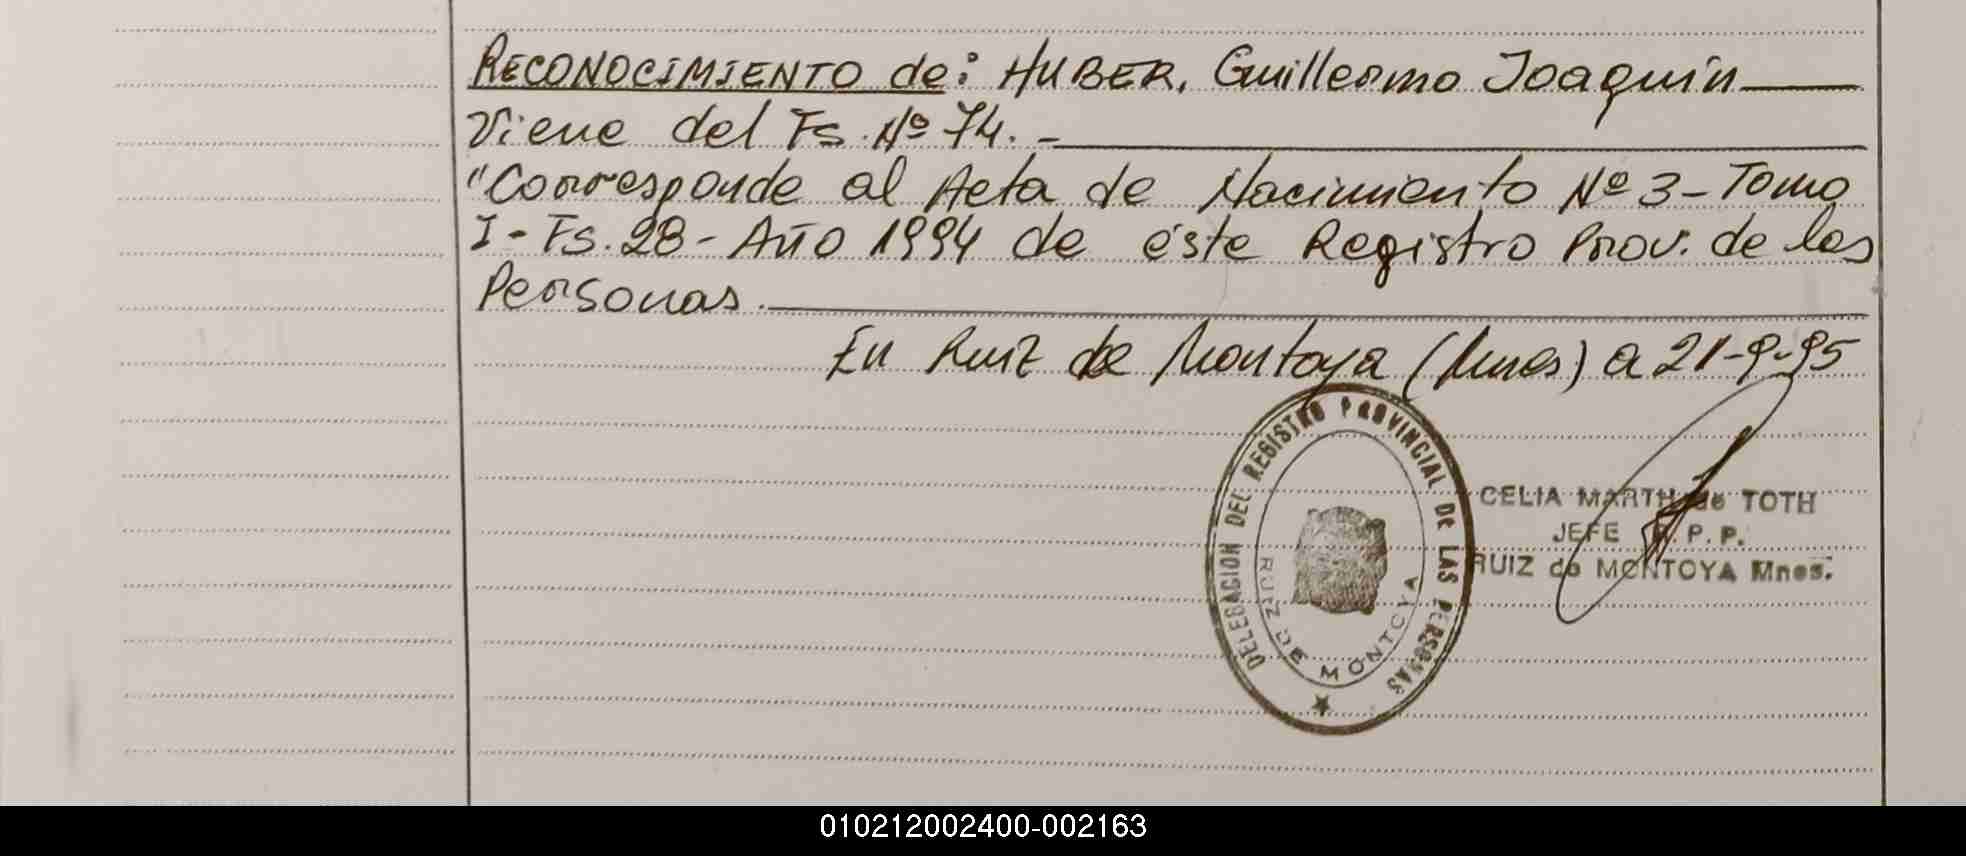 RECONOCIMIENTO de: HUBER, Guillermo Joaquín
Viene del Fs. Nº 74. -
"Corresponde al Acta de Nacimiento Nº 3 - Tomo
I - Fs. 28 - Año 1994 de éste Registro Prov. de las
Personas.
En Ruiz de Montoya (Mnes) a 21-9-95
DELEGACION DEL REGISTRO PROVINCIAL DE LAS PERSONAS
RUIZ DE MONTOYA
CELIA de TOTH
JEFE R.P.P.
RUIZ de MONTOYA Mnes.
010212002400-002163